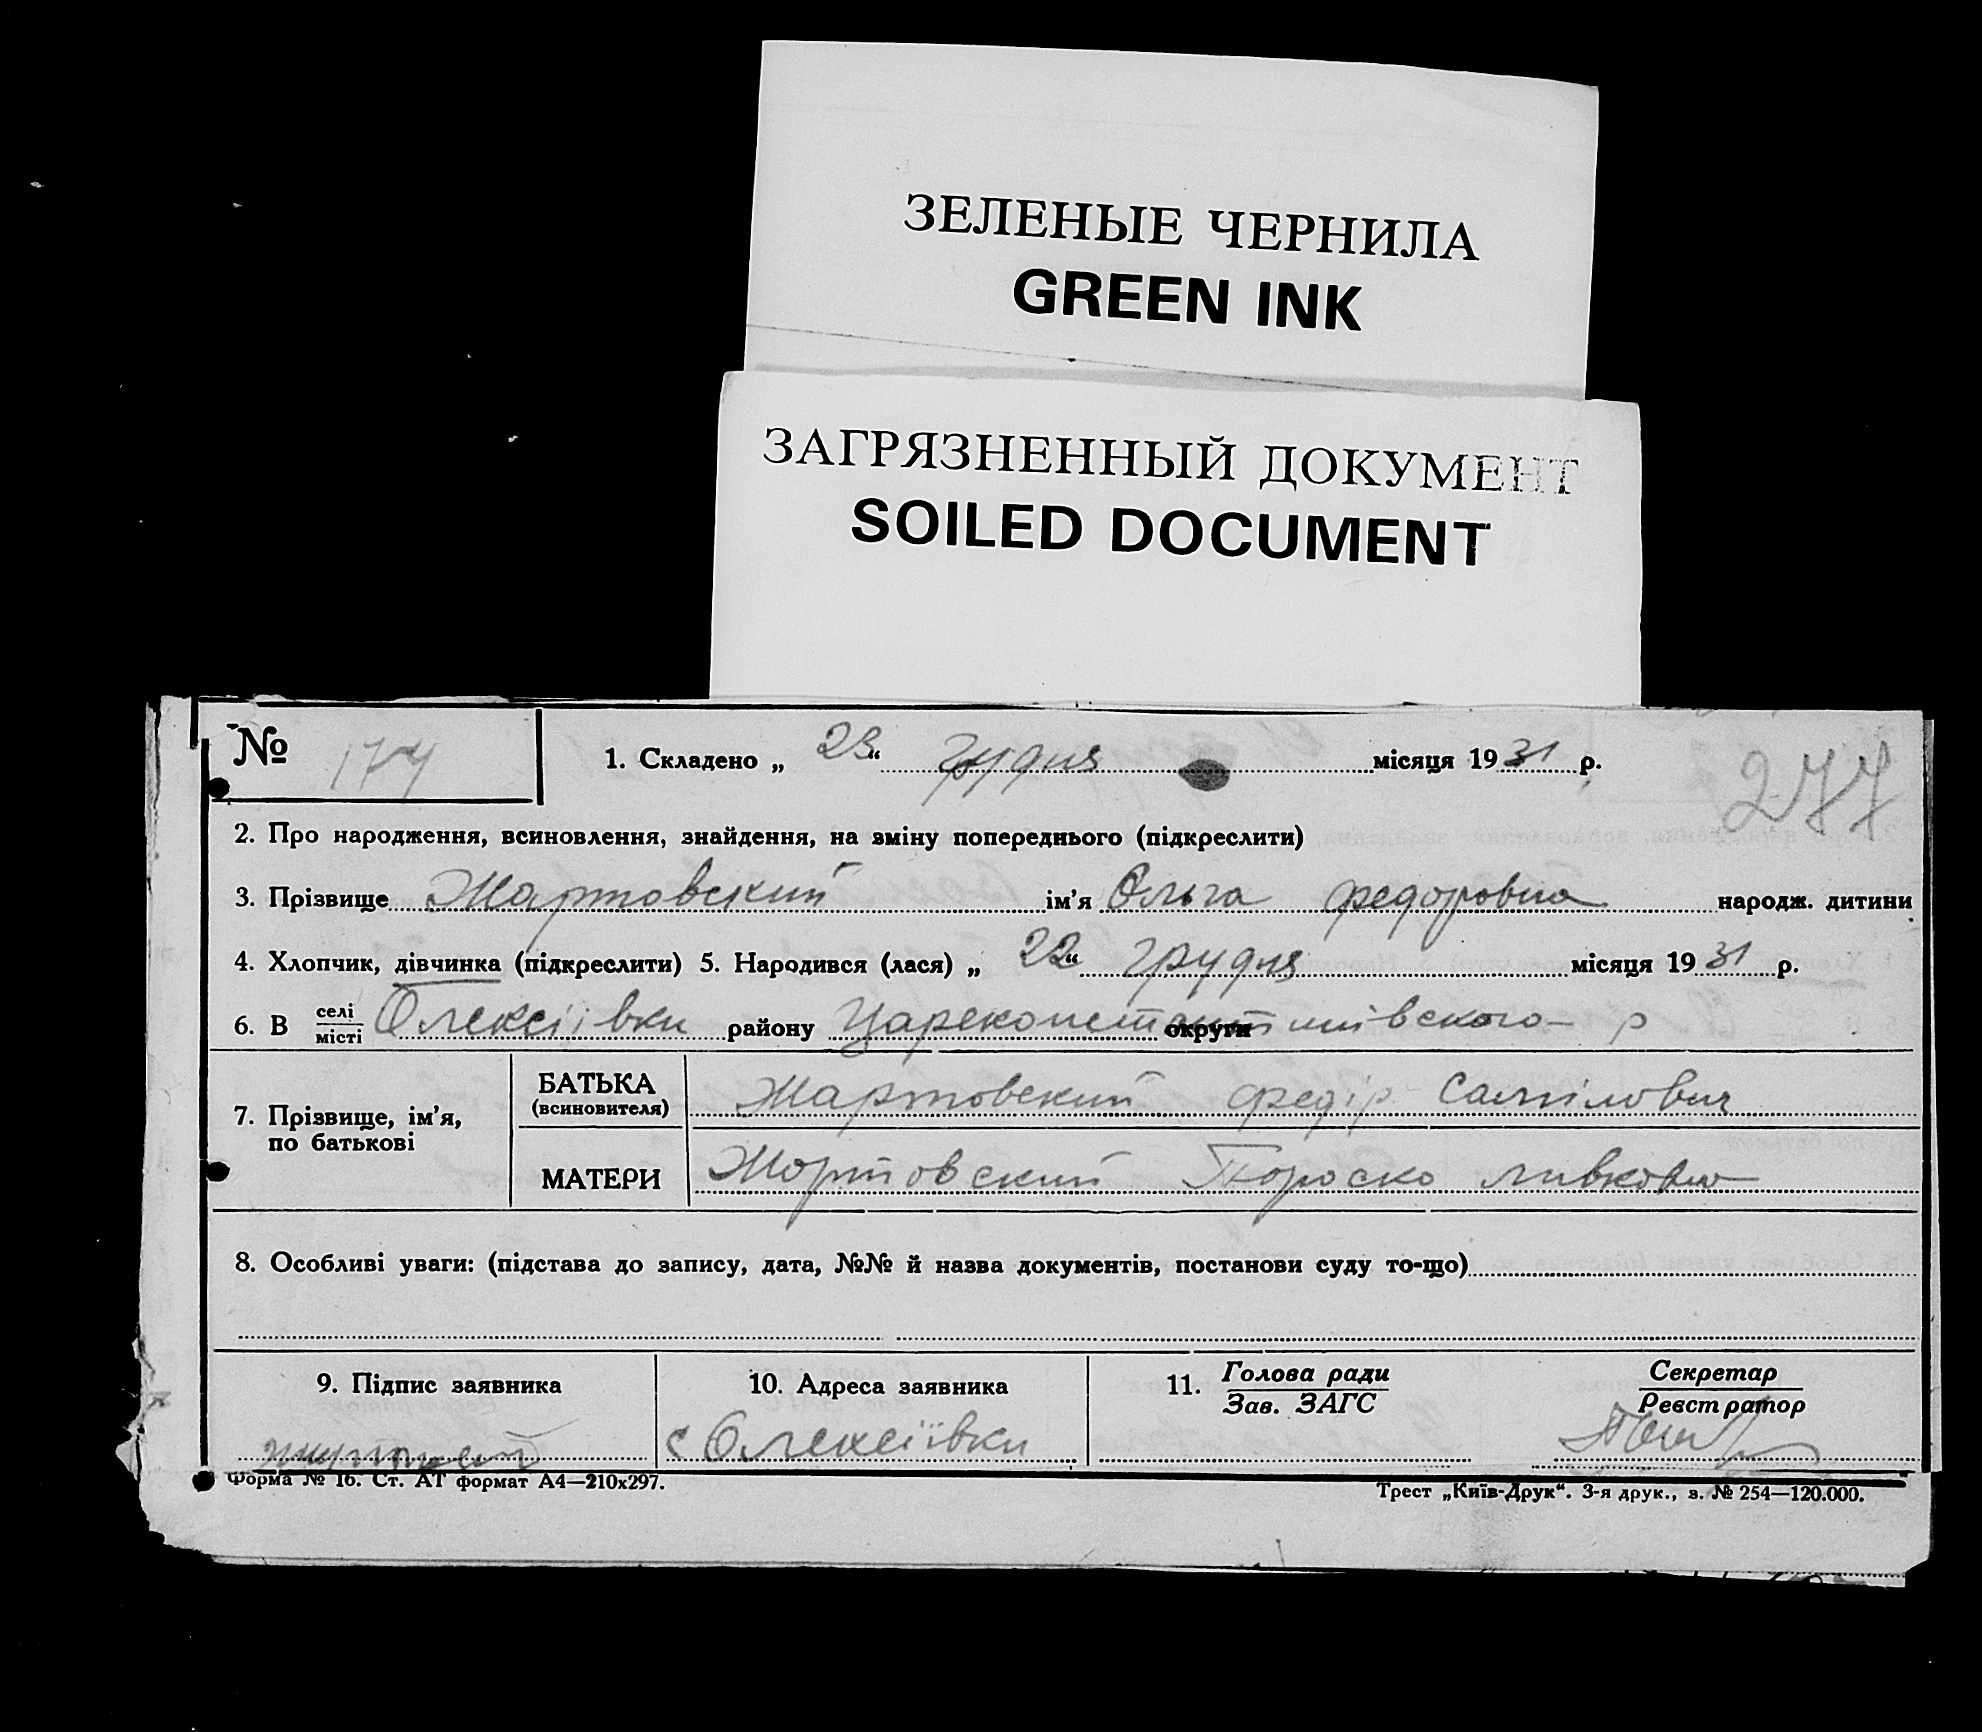 ЗЕЛЕНЫЕ ЧЕРНИЛА
GREEN INK
ЗАГРЯЗНЕННЫЙ ДОКУМЕНТ
SOILED DOCUMENT
№ 174
1. Складено „ 23 “ грудня місяця 1931 р.
277
2. Про народження, всиновлення, знайдення, на зміну попереднього (підкреслити)
3. Прізвище Жартовский ім’я Ольга федоровна народж. дитини
4. Хлопчик, дівчинка (підкреслити) 5. Народився (лася) „ 22 “ грудня місяця 1931 р.
6. В селі/місті Олексіївки району Цареконстантинівского округи р
7. Прізвище, ім’я, по батькові
БАТЬКА (всиновителя) Жартовский федір Самілович
МАТЕРИ Жортовский
8. Особливі уваги: (підстава до запису, дата, №№ й назва документів, постанови суду то-що)
9. Підпис заявника
10. Адреса заявника
с Олексіївки
11. Голова ради/Зав. ЗАГС
Секретар/Реєстратор
Форма № 16. Ст. АТ формат А4—210х297.
Трест „Київ-Друк“. 3-я друк., з. № 254—120.000.